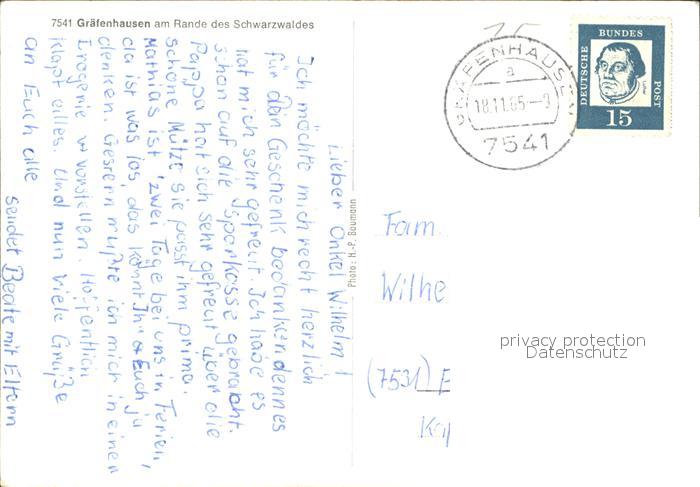 7541 Gräfenhausen am Rande des Schwarzwaldes
Lieber Onkel Wilhelm!
Ich möchte mich recht herzlich
für dein Geschenk bedanken, denn es
hat mich sehr gefreut. Ich habe es
schon auf die Sparkasse gebracht.
Pappa hat sich sehr gefreut über die
schöne Mütze sie passt ihm prima.
Mathias ist zwei Tage bei uns in Ferien,
da ist was los, das könnt Ihr Euch ja
denken. Gestern mußte ich mich in einer
vorstellen. Hoffentlich
klapt alles. Und nun viele Grüße
an Euch alle
sendet Beate mit Eltern
Photo: H.-P. Baumann
GRÄFENHAUSEN
a
18.11.65-9
7541
DEUTSCHE BUNDES POST
15
Fam.
Wilhe
(7531)
privacy protection
Datenschutz